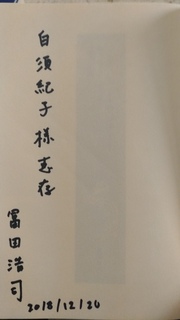 白須紀子様惠存
冨田浩司
2018/12/20